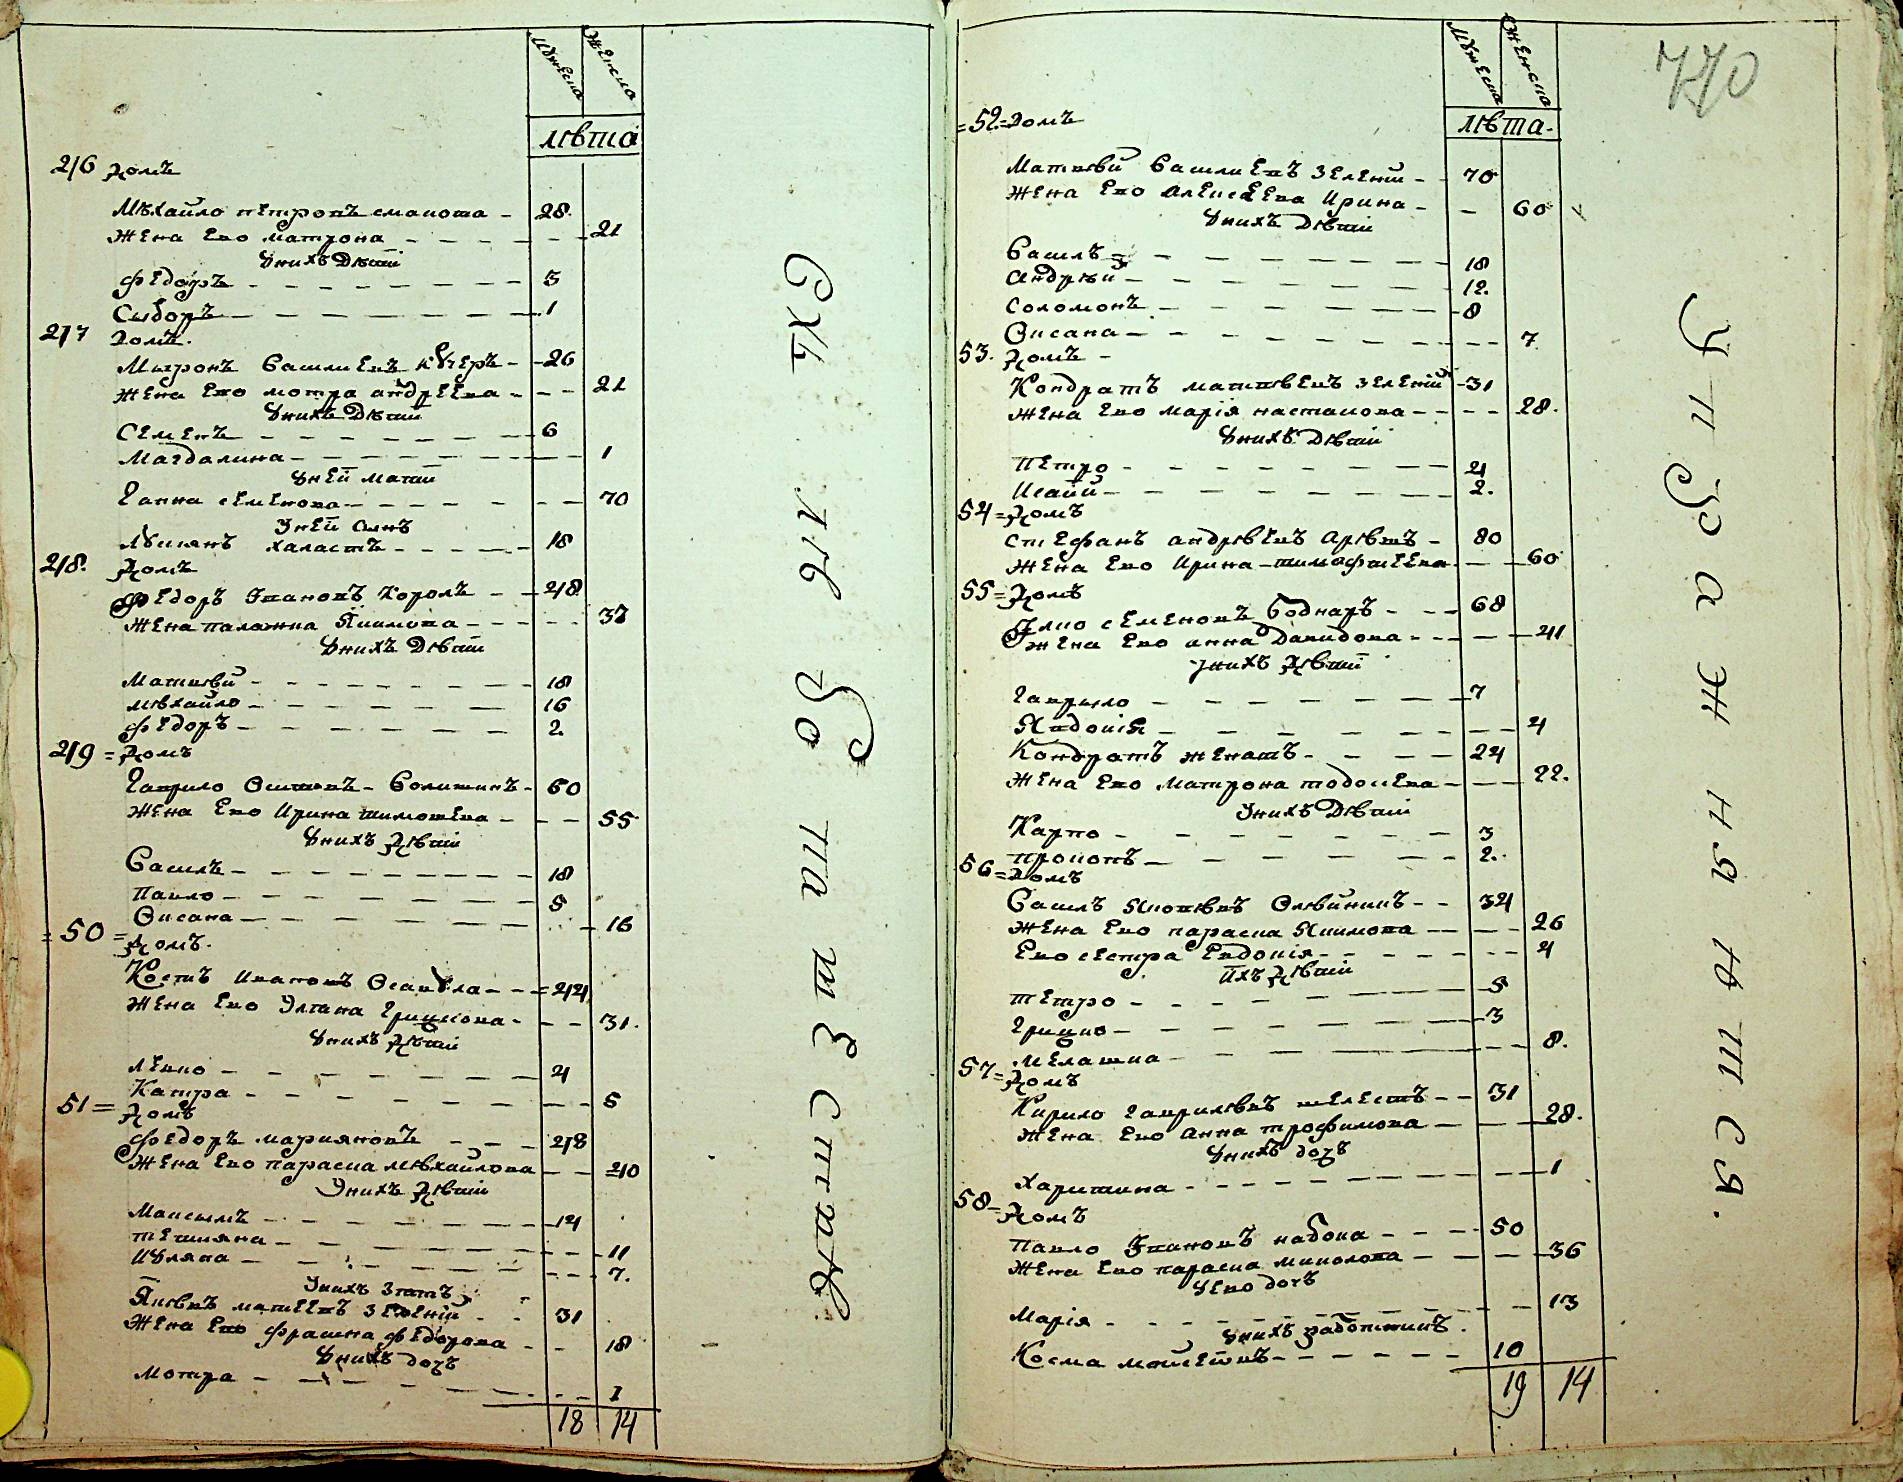 Мужеска Женска
лѣта
46 Домъ
Мѣхайло петровъ смакота - 28.
Жена Ево матрона 21
Уних Дѣтии
Федоръ 5
Сыдоръ 1
47 Домъ.
Мыронъ Василиевъ кучеръ 26
Жена Ево мотра андрѣева 21
Унихъ Дѣтии
Семенъ 6
Магдалина 1
Уней мати
Ганна семенова 70
Уней сынъ
Лукиянъ халастъ 18
48. Домъ
Федоръ Ивановъ Король 48
Жена палажка Якимова 38
Унихъ Дѣтии
Матвѣй 18
мѣхайло 16
Федоръ 2.
49 = Домъ
Гаврило Осиповъ 60
Жена Ево Ирина тимошева 55
Унихъ Дѣтии
Василъ 18
Павло 5
Оксана 16
= 50 = Домъ.
Костъ Ивановъ Осавула 44
Жена Ево Улиана Грицкова 31.
Унихъ Дѣтии
Левко 4
Катра 5
51 = Домъ
Федоръ марияновъ 48
Жена Ево параска мѣхайлова 40
Унихъ Дѣтии
Максымъ 14
тетияна 11
Иуляна 7.
Унихъ Зятъ
Яковъ матвеевъ зеленій 31
Жена Ево Фрасина Федорова 18
Унихъ дочъ
Мотра 1
18 14
Съ л ѣ д о в а т е л н о
Мужеска Женска
770
лѣта.
=52.= Домъ
Матвѣй Василиевъ Зелении 70
Жена Ево Алексѣева Ирина 60
Унихъ Дѣтии
Василъ 18
Андрѣй 12.
Соломонъ 8
Оксана 7
53. Домъ
Кондратъ матвѣевъ зеленій 31
Жена Ево Марія настакова 28.
Унихъ Дѣтии
Петро 4
Исаий 2.
54 = Домъ
Стефанъ андрѣевъ 80
Жена Ево Ирина тимофтеева 60
55 = Домъ
Улко семеновъ Боднаръ 68
Жена Ево анна Давидова 41
Унихъ Дѣтии
Гаврыло 7
Явдокія 4
Кондратъ женатъ 24
Жена Ево Матрона тодосиева 22.
Унихъ Дѣтии
Карпо 3
прокопъ 2.
56 = Домъ
Василъ Яковѣвъ Олѣйникъ 34
Жена Ево параска Якимова 26
Ево сестра Евдокія 4
Ихъ Дѣтии
петро 5
Грицко 3
Мелашка 8.
57 = Домъ
Кирило Гаврилѣвъ шелестъ 31
Жена Ево Анна трофимова 28.
Унихъ дочъ
Харитина 1
58 = Домъ
Павло Ивановъ набока 50
Жена Ево параска миколова 36
Уево дочъ
Марія 13
Унихъ работникъ
Косма мойсеовъ 10
19 14
У п р а ж н я ю т с я .